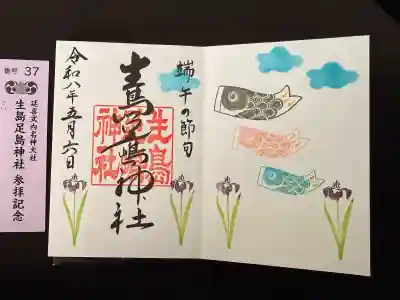 端午の節句
生島足島神社
令和八年五月六日
生島
神社
番号 37
延喜式内名神大社
生島足島神社 参拝記念